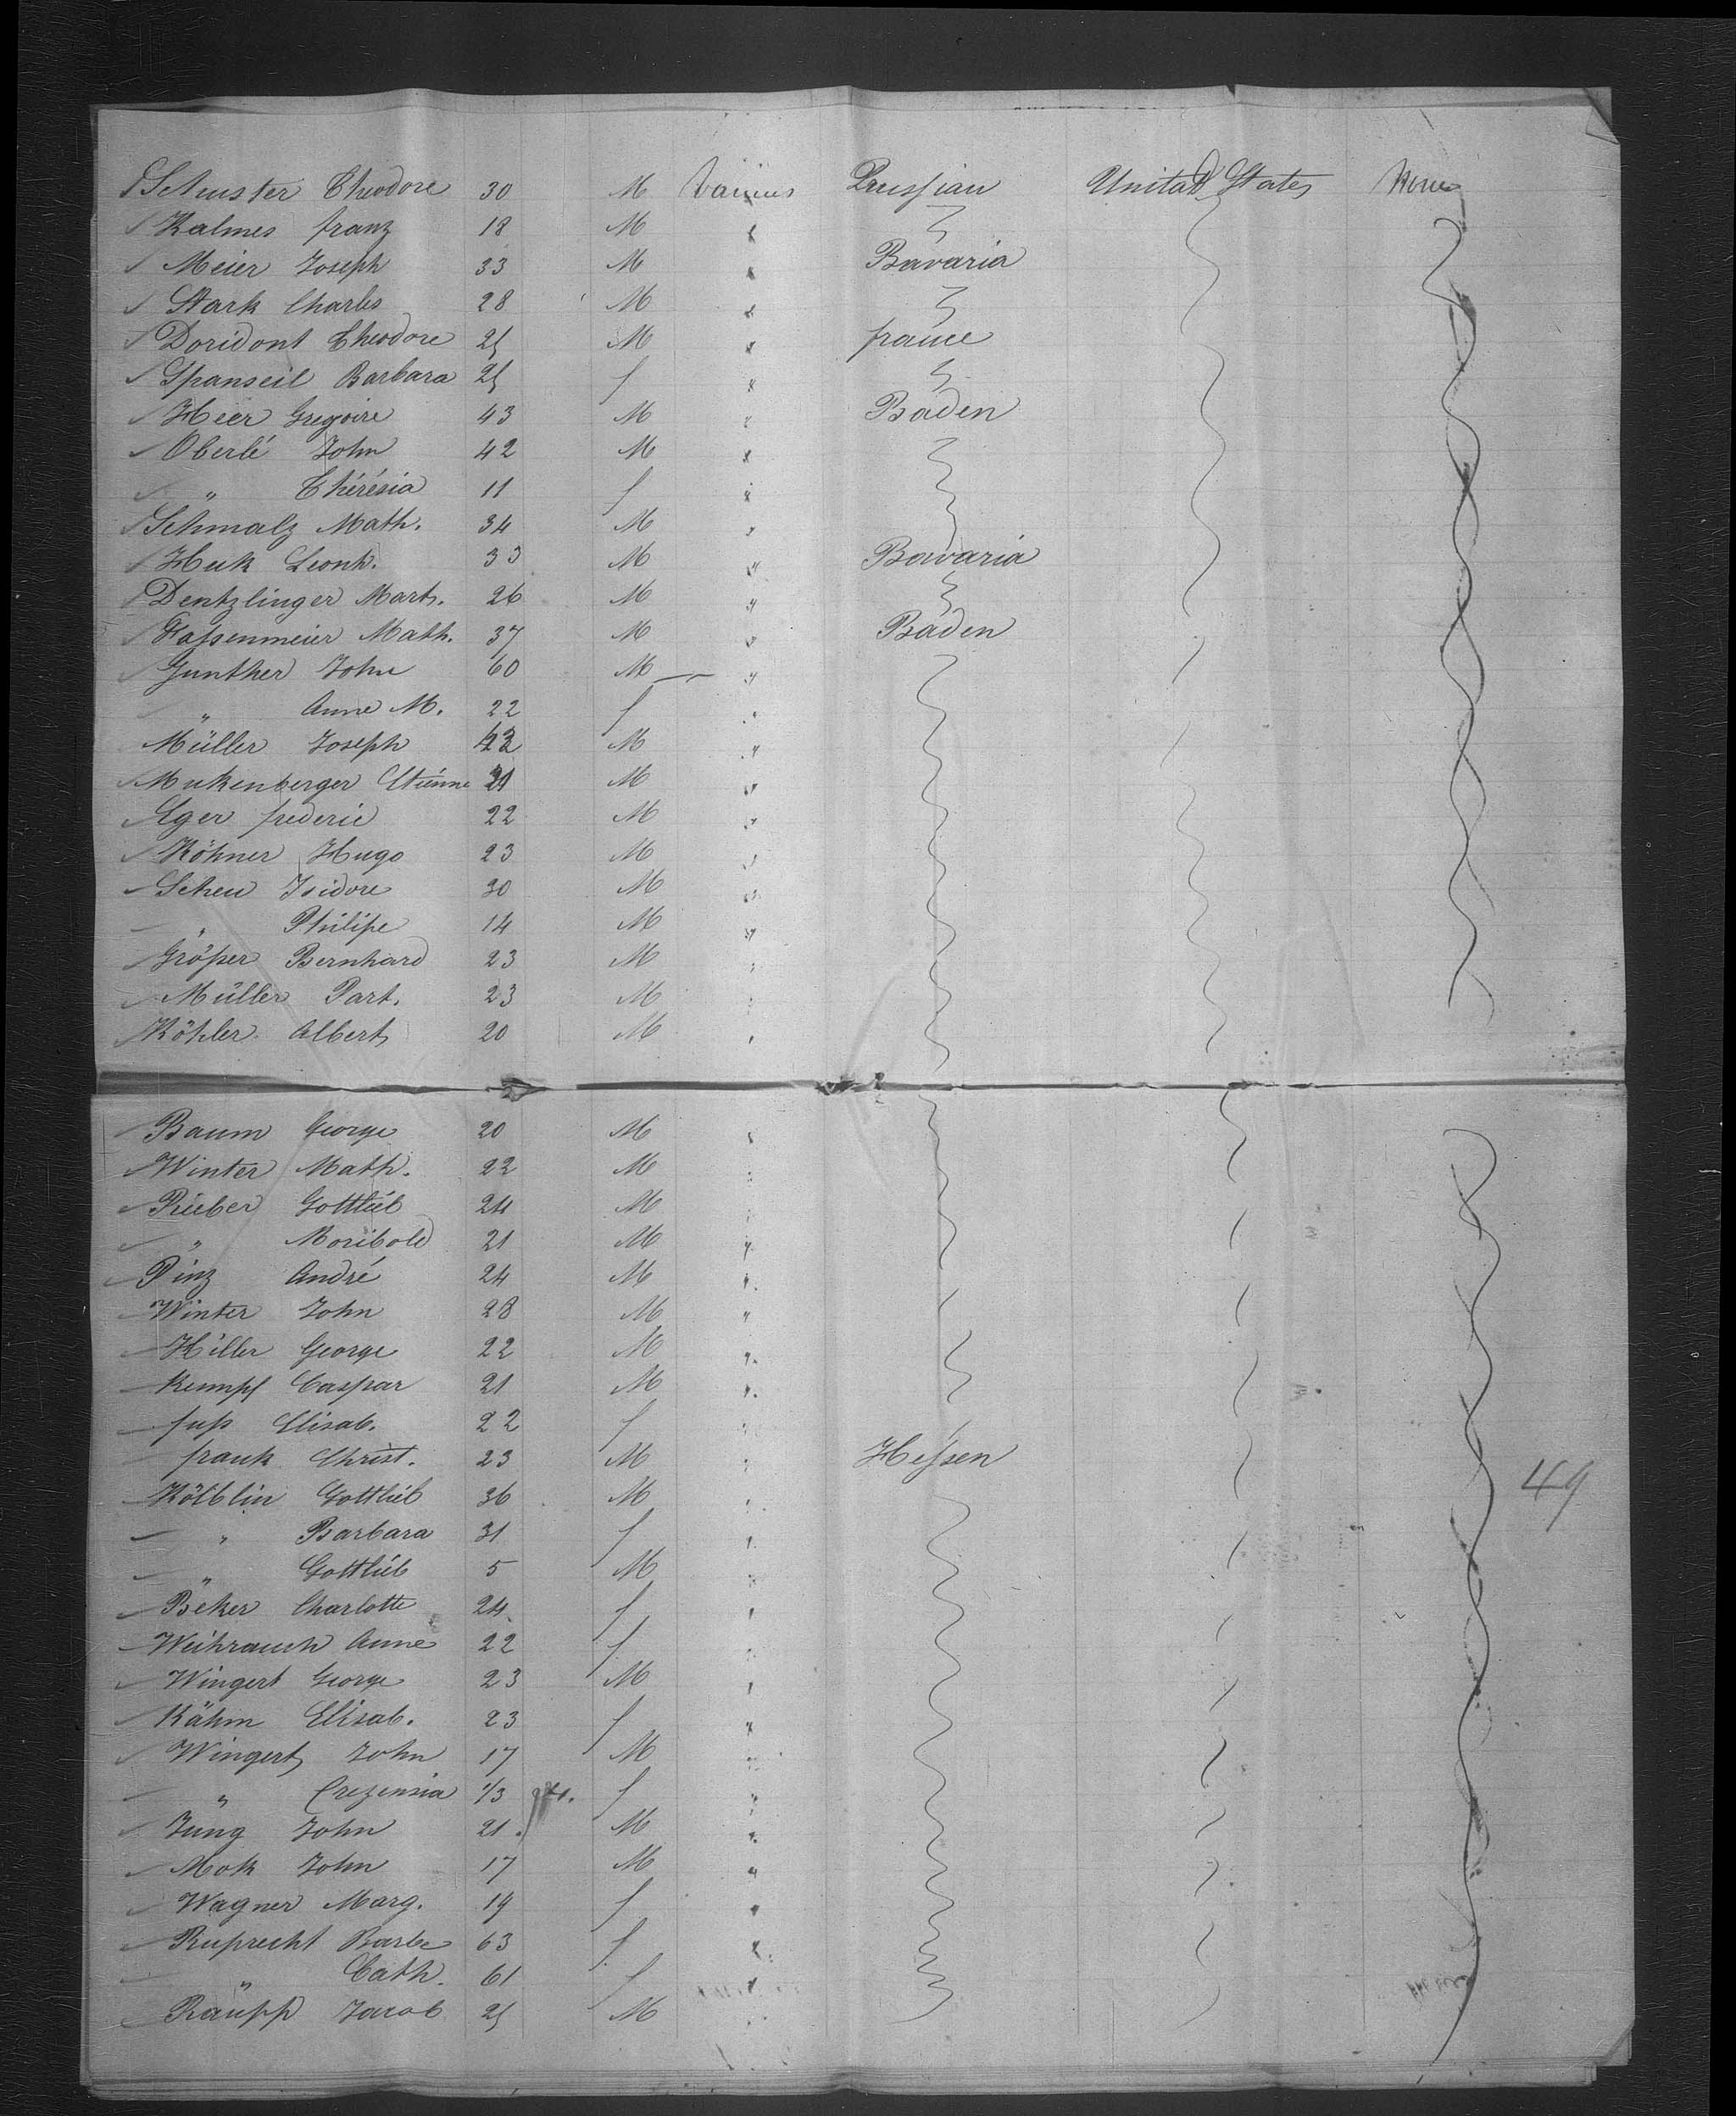 Schuster Theodore 30 M Various Prussian United States None
Kalmes franz 18 M "
Meier Joseph 33 M " Bavaria
Stark Charles 28 M "
Doridont Theodore 25 M " france
Spanseil Barbara 25 f "
Heer Gregoire 43 M " Baden
Oberlé John 42 M "
" Thérésia 11 f "
Schmalz Math. 34 M "
Huk Leonh. 33 M " Bavaria
Dentzlinger Mart. 26 M "
Hassenmeier Math. 37 M " Baden
Gunther John 60 M "
" Anne M. 22 f "
Müller Joseph M "
Mukenberger Etienne 21 M "
Eger frederic 22 M "
Köhner Hugo 23 M "
Scheu Isidore 30 M "
" Philipe 14 M "
Größer Bernhard 23 M "
Müller Part. 23 M "
Köhler Albert 20 M "
Baum George 20 M "
Winter Math. 22 M "
Rieber Gottlieb 24 M "
" Moribold 21 M "
Pinz André 24 M "
Winter John 28 M "
Hiller George 22 M "
Kempf Caspar 21 M "
fuß Elisab. 22 f "
frank Christ. 23 M " Hessen
Kölblin Gottlieb 36 M "
" Barbara 31 f "
" Gottlieb 5 M "
Beker Charlotte 24 f "
Weihrauch Anne 22 f "
Wingert George 23 M "
Kähm Elisab. 23 f "
Wingert John 17 M "
" Crezensia 1/3 f "
Jung John 21 M "
Mok John 17 M "
Wagner Marg. 19 f "
Ruprecht Barbe 63 f "
" Cath. 61 f "
Raupp Jacob 25 M "
49